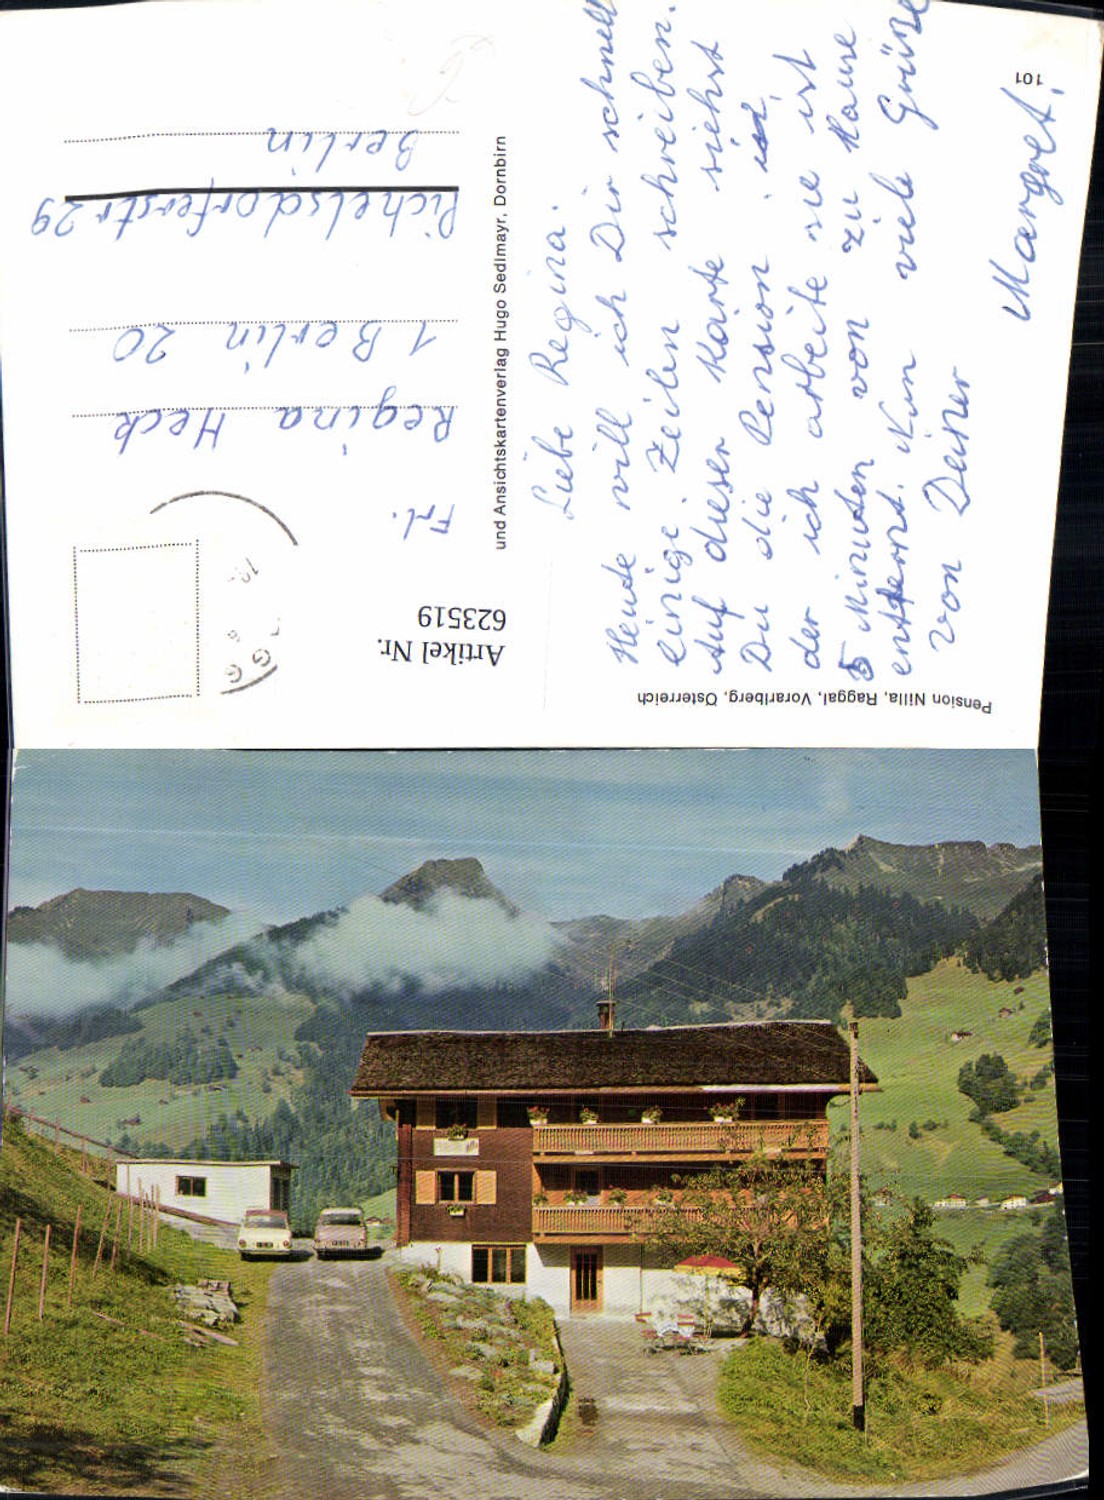 Pension Nilla, Raggal, Vorarlberg, Österreich
101
Liebe Regina.
Heute will ich Dir schnell
einige Zeilen schreiben.
Auf dieser Karte siehst
Du die Pension
der ich arbeite sie ist
5 Minuten von zu Hause
entfernt. Nun viele Grüße
von Deiner
Margret.
und Ansichtskartenverlag Hugo Sedlmayr, Dornbirn
Artikel Nr.
623519
Frl.
Regina Heck
1 Berlin 20
Pichelsdorferstr 29
Berlin